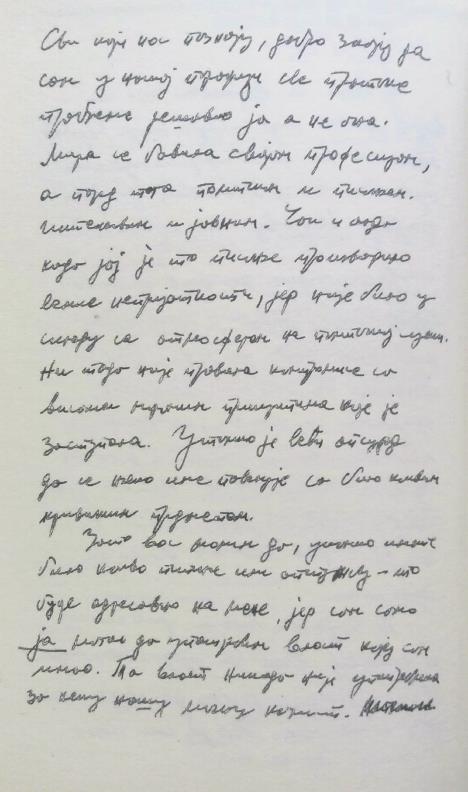 Сви који нас познају, добро знају да
сам у нашој породици све практичне
проблеме решавао ја а не она.
Мира се бавила својом професијом,
а поред тога политиком и писањем.
Интелектом и јавним. Чак и онда
када јој је то писање проузроковало
велике непријатности, јер није било у
складу са атмосфером на политичкој сцени.
Ни тада није правила компромисе са
високим моралним принципима које је
заступала. Утолико је већи апсурд
да се њено име повезује са било каквим
кривичним предметом.
Зато вас молим да, уколико имате
било какво питање или оптужбу - то
буде адресовано на мене, јер сам само
ја могао да употребим власт коју сам
имао. Та власт никада није употребљена
за неку нашу личну корист.